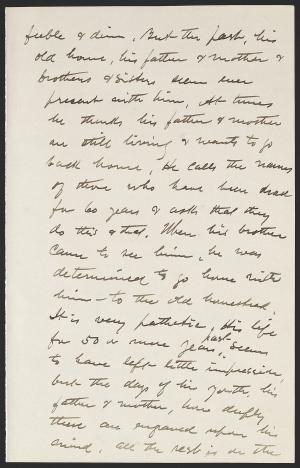 feeble & dim. But the past, his
old home, his father & mother &
brothers & sisters seem ever
present with him. At times
he thinks his father & mother
are still living & wants to go
back home. He calls the names
of those who have been dead
for 60 years & asks that they
do this & that. When his brother
came to see him, he was
determined to go home with
him – to the old homestead.
It is very pathetic. His life
for 50 or more years past seems
to have left little impression,
but the days of his youth, his
father & mother, how deeply
these are engraved upon his
mind. All the rest is in the